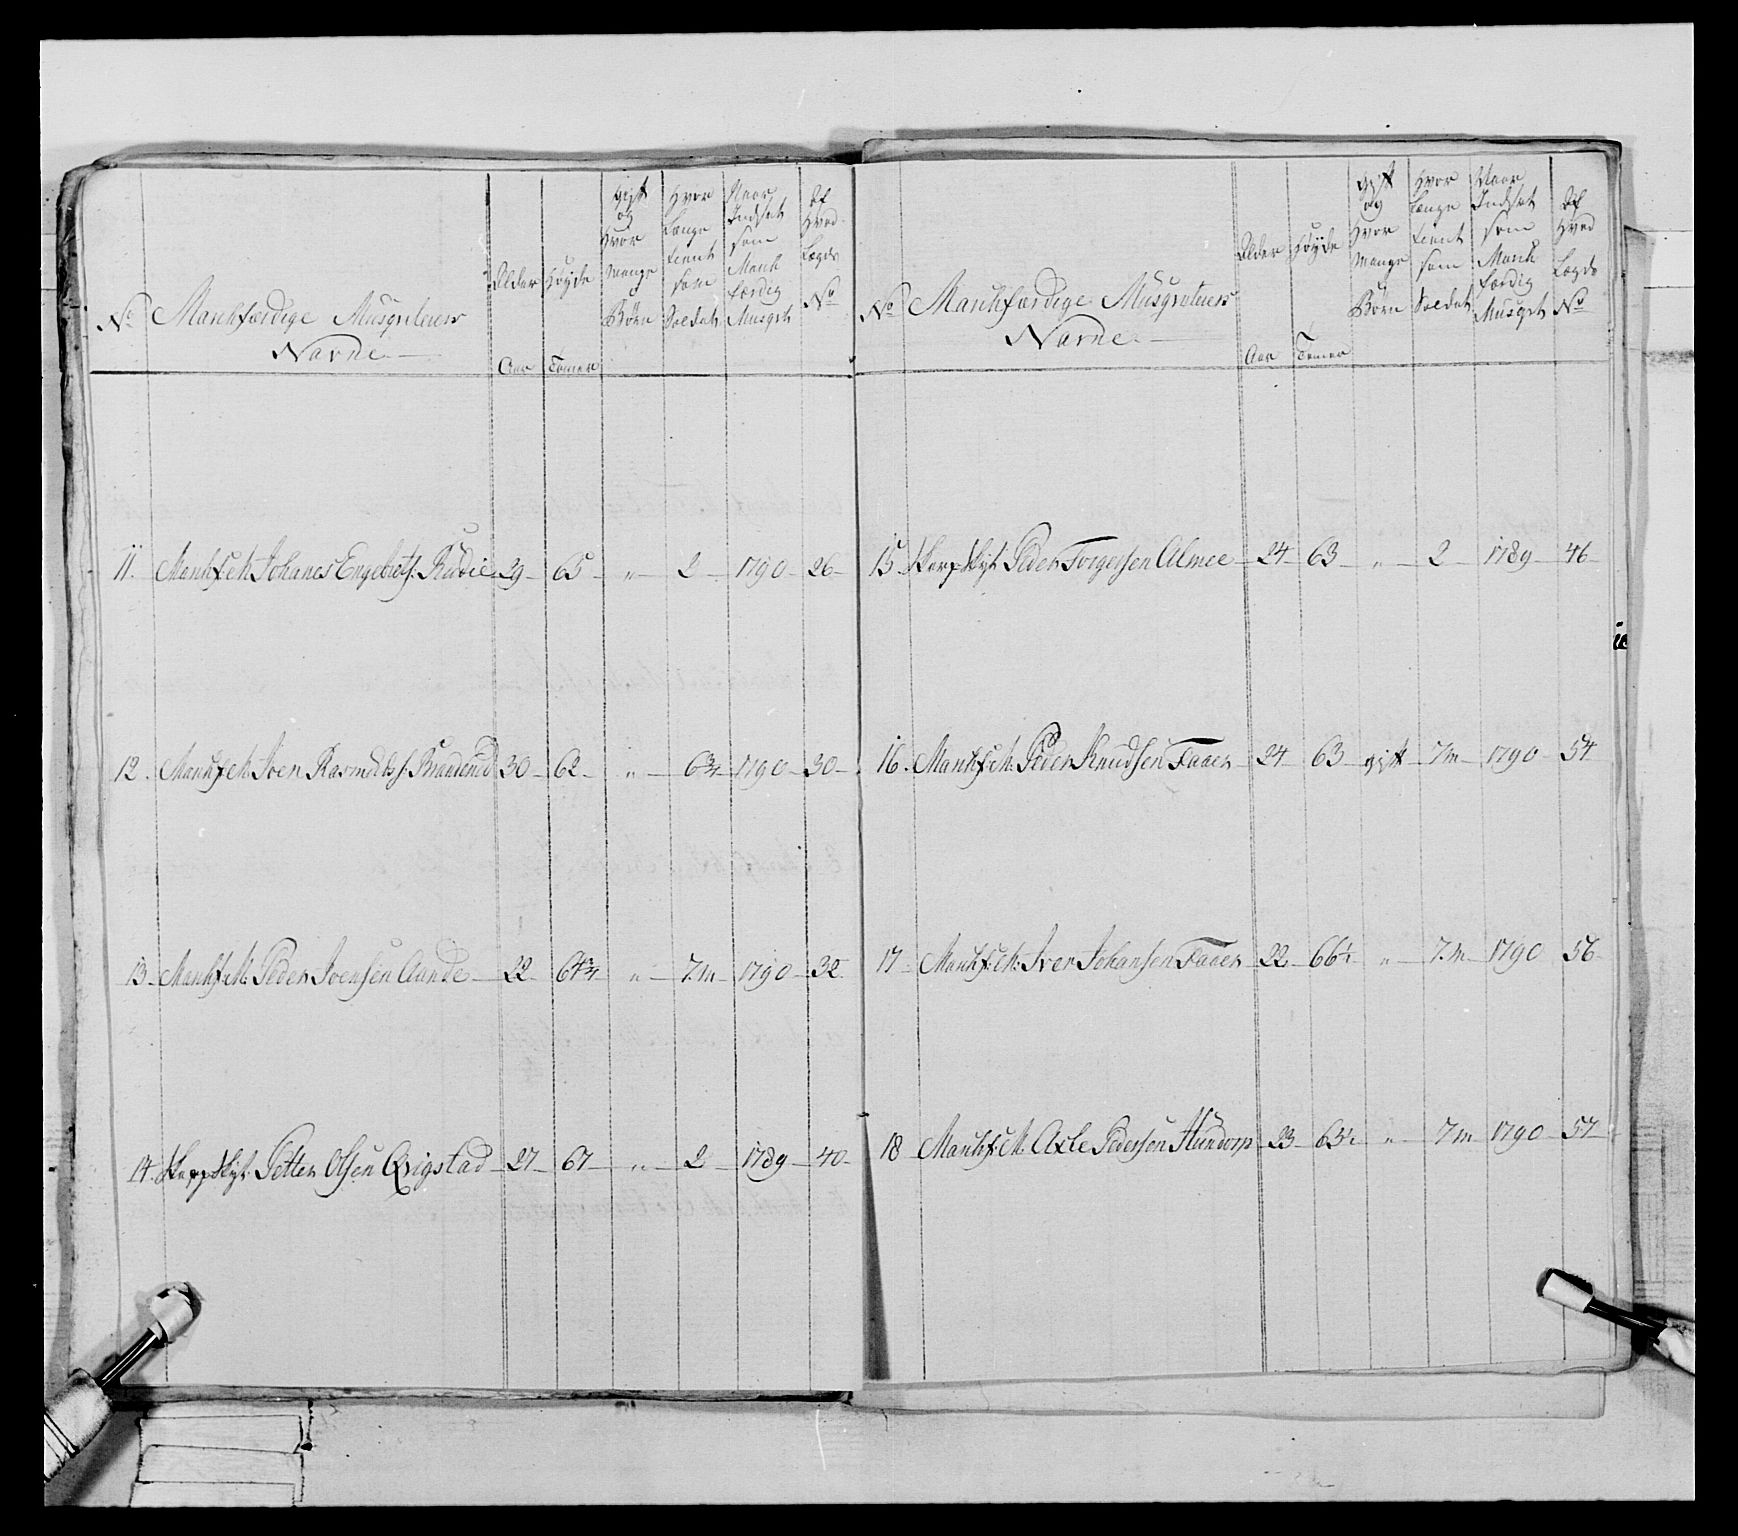 No
Marchfærdige Musqviteurs
Navne
Alder
Aar
Høyde
Tomer
gift
og
Hvor
Mange
Børn
Hvor
Længe
tient
som
Soldat
Naar
Indsat
som
March
færdig
Musqvt
Af
Hvad
Lægds
No
11. Marchf. M. Johanes Engebretsf. 29 65 „ 2 1790 26
12. Marchf. M. Iven Rasmusf. 30 62 „ 6¾ 1790 30
13. Marchf. M. Peder Ivensen Aunde 22 64¾ „ 7m 1790 32
14. Skarpskyt. Petter Olsen Qvigstad 27 67 „ 2 1789 40
No
Marchfærdige Musqviteurs
Navne
Alder
Aar
Høyde
Tomer
gift
og
Hvor
Mange
Børn
Hvor
Længe
tient
som
Soldat
Naar
Indsat
som
March
færdig
Musqvt
Af
Hvad
Lægds
No
15. Skarpskyt. Peder Torgersen Almee 24 63 „ 2 1789 46
16. Marchf. M. Peder Knudsen Faaer 24 63 gift 7m 1790 54
17 Marchf. M. Iver Johansen Faaer 22 66½ „ 7m 1790 56
18 Marchf. M. Axle Pedersen Hundorp 23 63½ „ 7m 1790 57